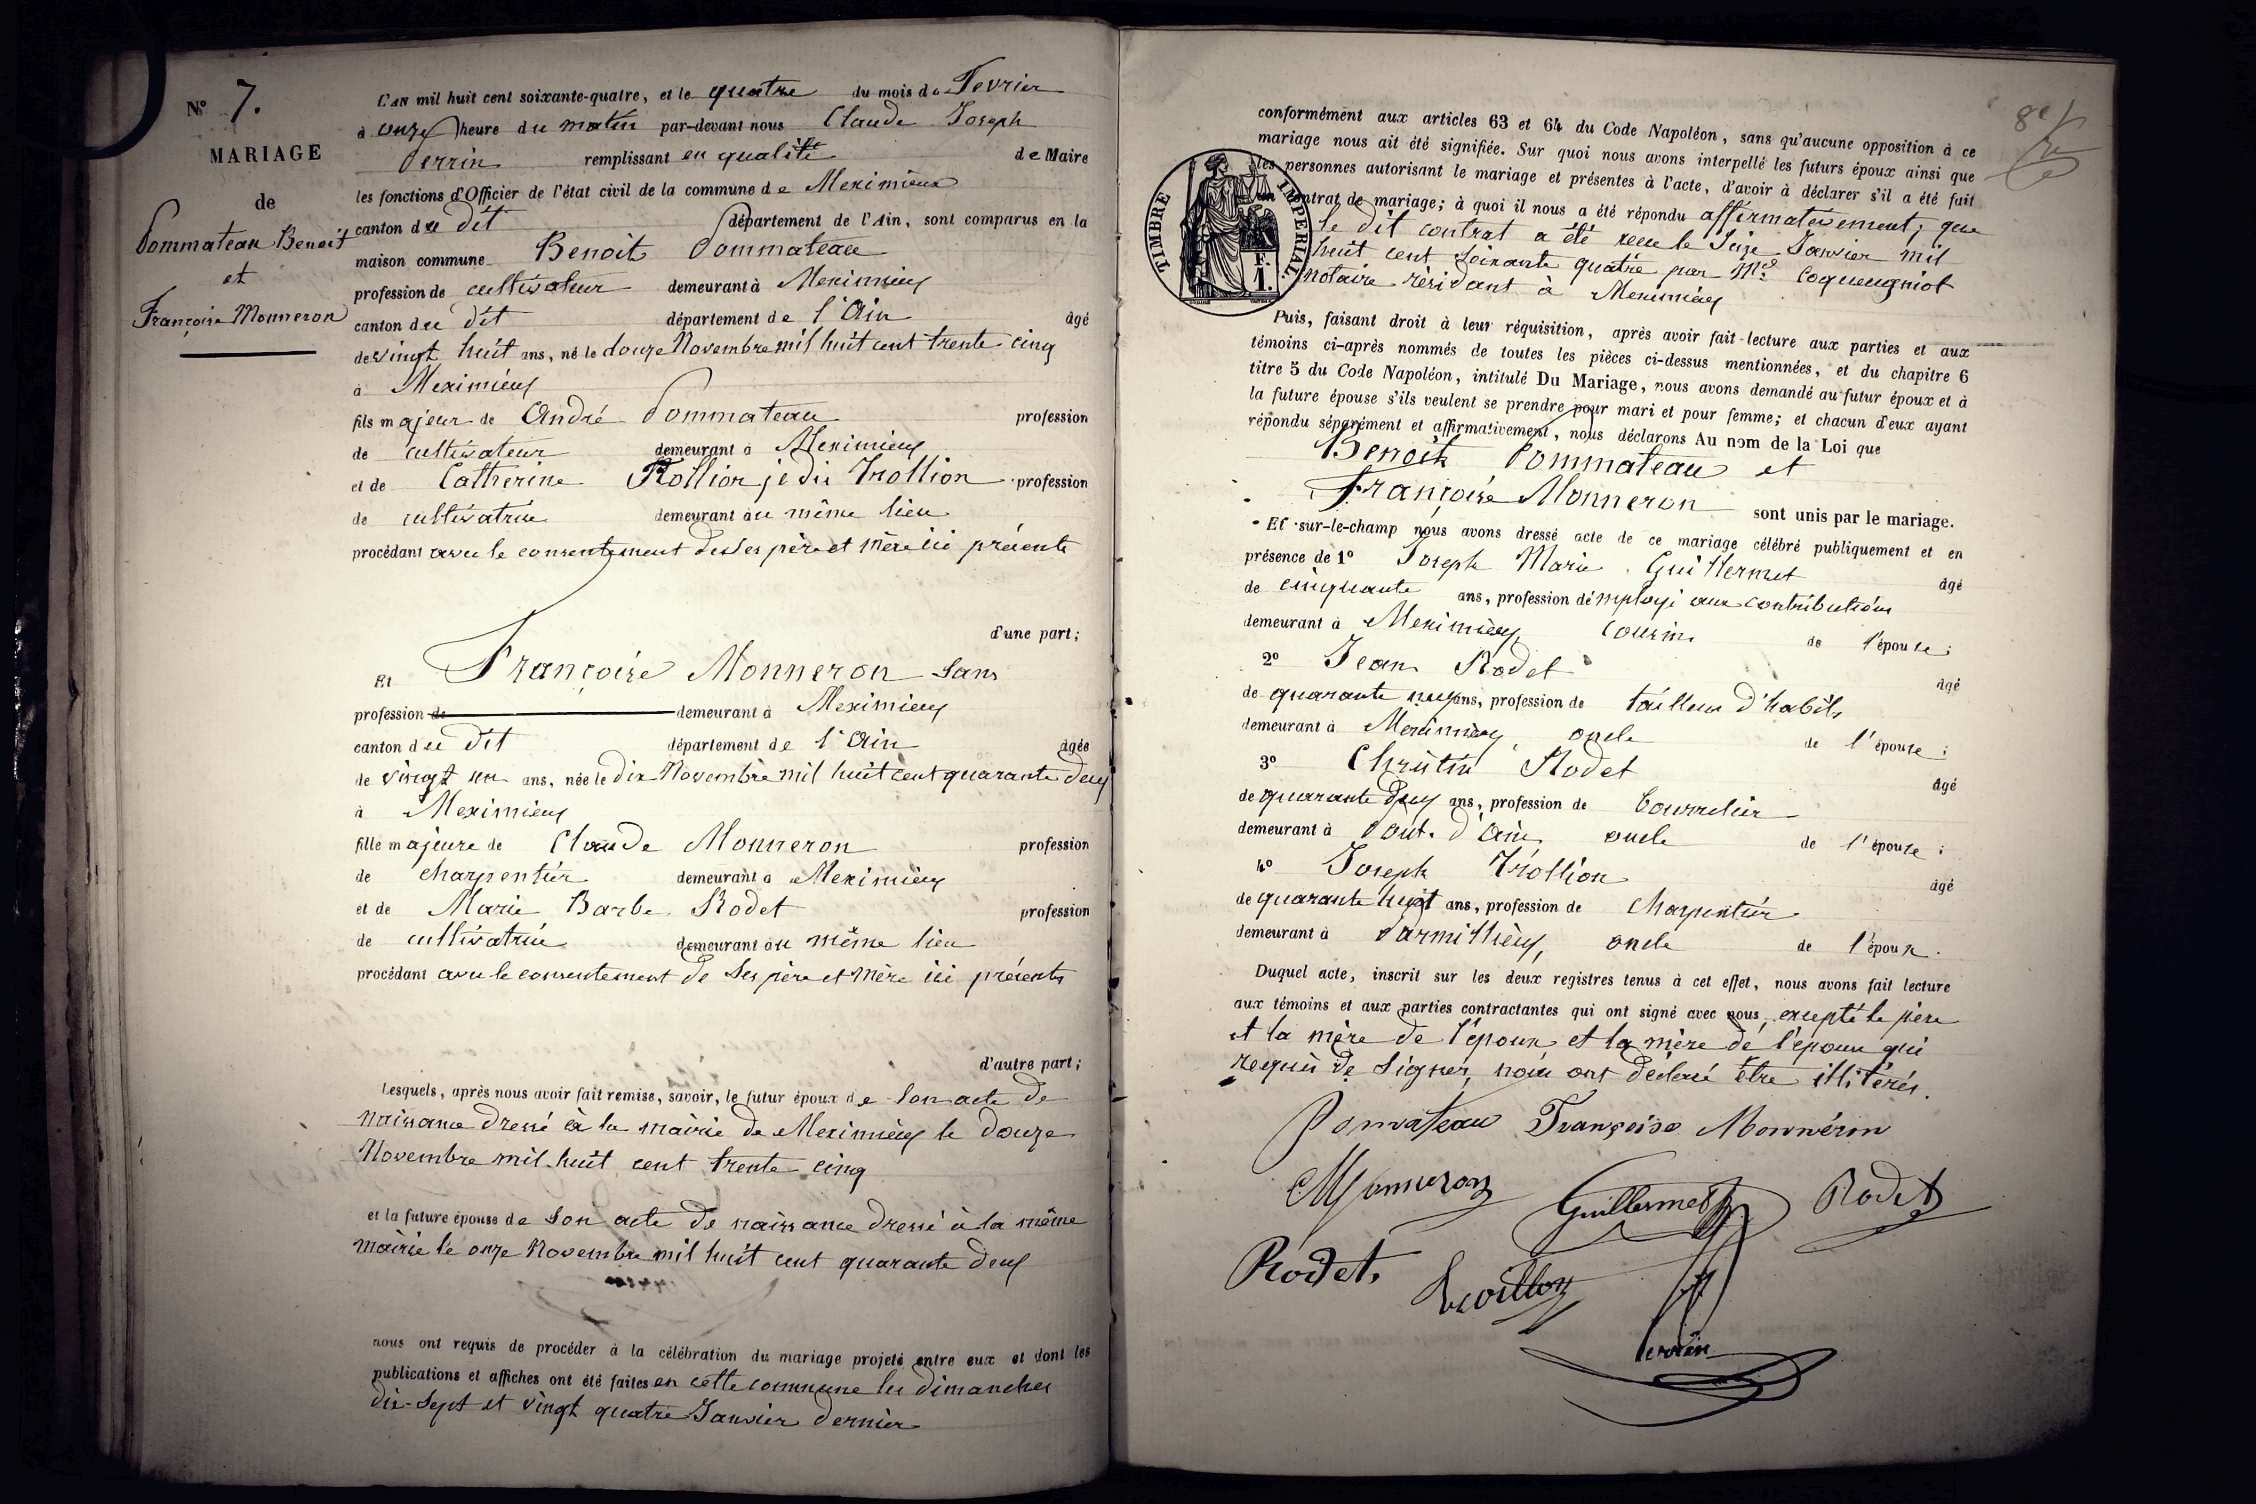 N° 7.
MARIAGE
de
Pommateau Benoit
et
Françoise Monneron
L'AN mil huit cent soixante-quatre, et le quatre du mois de Fevrier
à onze heure du matin par-devant nous Claude Joseph
Perrin remplissant en qualité de Maire
les fonctions d'Officier de l'état civil de la commune de Meximieux
canton du dit département de l'Ain, sont comparus en la
maison commune Benoit Pommateau
profession de cultivateur demeurant à Meximieux
canton du dit département de l'Ain âgé
de vingt huit ans, né le douze Novembre mil huit cent trente cinq
à Meximieux
fils majeur de André Pommateau profession
de cultivateur demeurant à Meximieux
et de Catherine Rollion je dis Trollion profession
de cultivatrice demeurant au même lieu
procédant avec le consentement de ses père et mère ici présents
d'une part;
Et Françoise Monneron sans
profession de demeurant à Meximieux
canton du dit département de l'Ain âgée
de vingt un ans, née le dix Novembre mil huit cent quarante deux
à Meximieux
fille majeure de Claude Monneron profession
de charpentier demeurant à Meximieux
et de Marie Barbe Rodet profession
de cultivatrice demeurant au même lieu
procédant avec le consentement de ses père et mère ici présents
d'autre part;
Lesquels, après nous avoir fait remise, savoir, le futur époux de son acte de
naissance dressé à la mairie de Meximieux le douze
Novembre mil huit cent trente cinq
et la future épouse de son acte de naissance dressé à la même
mairie le onze Novembre mil huit cent quarante deux
nous ont requis de procéder à la célébration du mariage projeté entre eux et dont les
publications et affiches ont été faites en cette commune les dimanches
dix-sept et vingt quatre Janvier dernier
8e
TIMBRE IMPERIAL
F.
1.
conformément aux articles 63 et 64 du Code Napoléon, sans qu'aucune opposition à ce
mariage nous ait été signifiée. Sur quoi nous avons interpellé les futurs époux ainsi que
les personnes autorisant le mariage et présentes à l'acte, d'avoir à déclarer s'il a été fait
un contrat de mariage; à quoi il nous a été répondu affirmativement, que
le dit contrat a été reçu le Seize Janvier mil
huit cent soixante quatre par Me Coqueugniot
notaire résidant à Meximieux
Puis, faisant droit à leur réquisition, après avoir fait lecture aux parties et aux
témoins ci-après nommés de toutes les pièces ci-dessus mentionnées, et du chapitre 6
titre 5 du Code Napoléon, intitulé Du Mariage, nous avons demandé au futur époux et à
la future épouse s'ils veulent se prendre pour mari et pour femme; et chacun d'eux ayant
répondu séparément et affirmativement, nous déclarons Au nom de la Loi que
Benoit Pommateau et
Françoise Monneron sont unis par le mariage.
Et sur-le-champ nous avons dressé acte de ce mariage célébré publiquement et en
présence de 1° Joseph Marie Guillermet âgé
de cinquante ans, profession d'employé aux contributions
demeurant à Meximieux, cousin de l'épouse;
2° Jean Rodet âgé
de quarante neuf ans, profession de tailleur d'habits
demeurant à Meximieux, oncle de l'épouse;
3° Christin Rodet âgé
de quarante deux ans, profession de bourrelier
demeurant à Pont-d'Ain, oncle de l'épouse;
4° Joseph Trollion âgé
de quarante huit ans, profession de charpentier
demeurant à Parmillieux, oncle de l'époux.
Duquel acte, inscrit sur les deux registres tenus à cet effet, nous avons fait lecture
aux témoins et aux parties contractantes qui ont signé avec nous, excepté le père
et la mère de l'époux et la mère de l'épouse qui
requis de signer, nous ont déclaré être illitérés.
Pommateau Françoise Monnéron
Monneron Guillermet Rodet
Rodet Trollion
Perrin